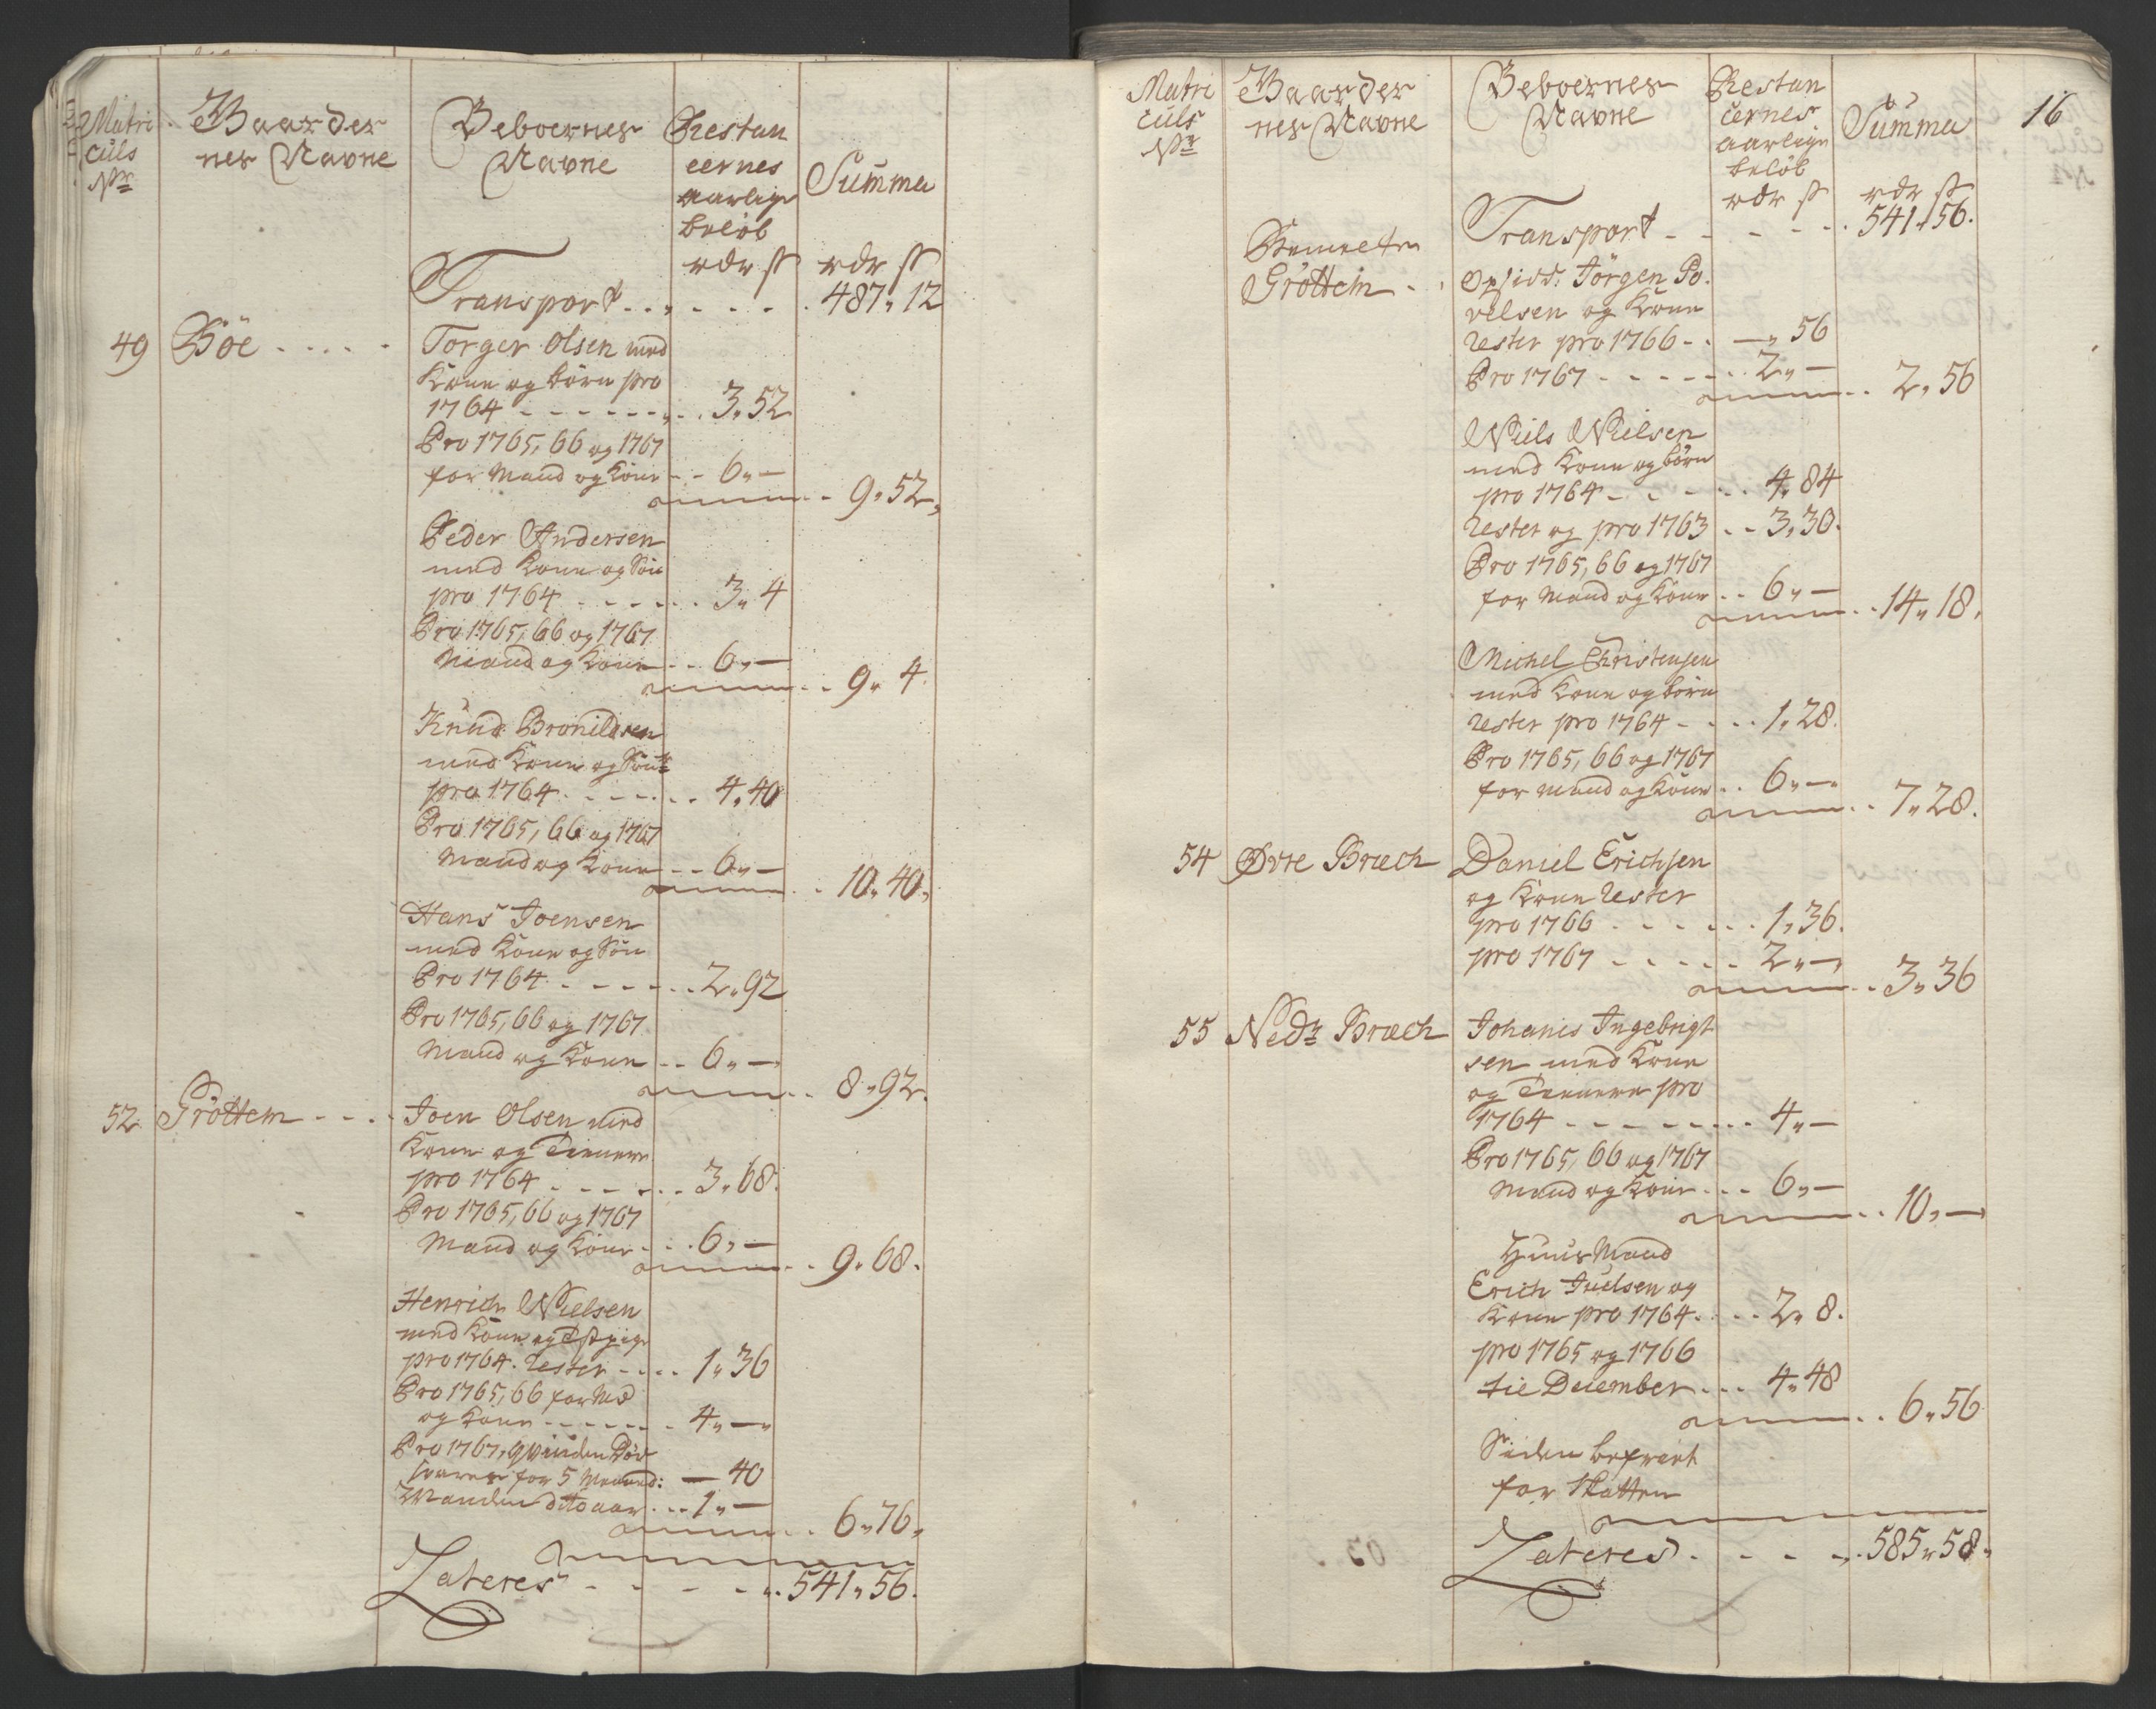 Matri
culs
Nr
Gaarder
nes Navne
Beboernes
Navne
Restan
cernes
aarlige
beløb
rdr ß
Summa
rdr ß
Transport . . . . . . 487 „ 12
49 Böe . . . . . Torger Olsen med
Kone og börn pro
1764 - - - - - - - 3 „ 52
Pro 1765, 66 og 1767
for Mand og Kone - - 6 „ —
9 „ 52 „
Peder Andersen
med Kone og Sön
pro 1764 . - - - . 3 „ 4
Pro 1765, 66 og 1767
Mand og Kone - - 6 „ —
9 „ 4.
Knud Bronildsen
med Kone og
pro 1764 . - - - . 4 „ 40
Pro 1765, 66 og 1767
Mand og Kone - - 6 „ —
10 „ 40 „
Hans Joensen
med Kone og Sön
Pro 1764 . - - - . 2 „ 92
Pro 1765, 66 og 1767
Mand og Kone - - 6 „ —
8 „ 92.
52 Gröttem - - . Joen Olsen med
Kone og Tienere
pro 1764 . - - - . 3 „ 68.
Pro 1765, 66 og 1767
Mand og Kone - - 6 „ —
9 „ 68.
Henrich Nielsen
med Kone og
pro 1764. rester - - . 1 „ 36
Pro 1765, 66 for Md
og Kone - - - - - . 4 „ —
Pro 1767, Qvinden Död
svarer for 5 Maaned: — 40
Manden dito aar . . . 1 „ —
6 „ 76 „
Lateres - - - - - . 541 „ 56.
16
Matri
culs
Nr
Gaarder
nes Navne
Beboernes
Navne
Restan
cernes
aarlige
beløb
rdr ß
Summa
rdr ß
Transport - - - - - . 541 „ 56.
Gröttem - . Opsidd: Jörgen Po.
velsen og Kone
rester pro 1766 - . — „ 56
Pro 1767 - - - - - . 2 „ —
2 „ 56
Niels Nielsen
med Kone og börn
pro 1764 - - - - . 4 „ 84
rester og pro 1763 . - - 3 „ 30.
Pro 1765, 66 og 1767
for Mand og Kone . . 6 „ —
14 „ 18.
Michel Christensen
med Kone og börn
rester pro 1764 - - . . 1 „ 28.
Pro 1765, 66 og 1767
for Mand og Kone . . 6 „ —
7 „ 28.
54 Øvre Bræch Daniel Erichsen
og Kone rester
pro 1766 . - - - - . 1 „ 36.
pro 1767 . - - - - . 2 „ —
3 „ 36
55 Nedr Bræch Johanis Ingebrigt
sen med Kone
og Tienere pro
1764 - - - - - - . 4 „ —
Pro 1765, 66 og 1767
Mand og Kone . . . 6 „ —
10 „ —
Huus Mand
Erich Juelsen og
Kone pro 1764. . . . 2 „ 8.
pro 1765 og 1766
til December . . . 4 „ 48
6 „ 56
Siden befriet
for Skatten
Lateres . - - - - . 585 „ 58 „